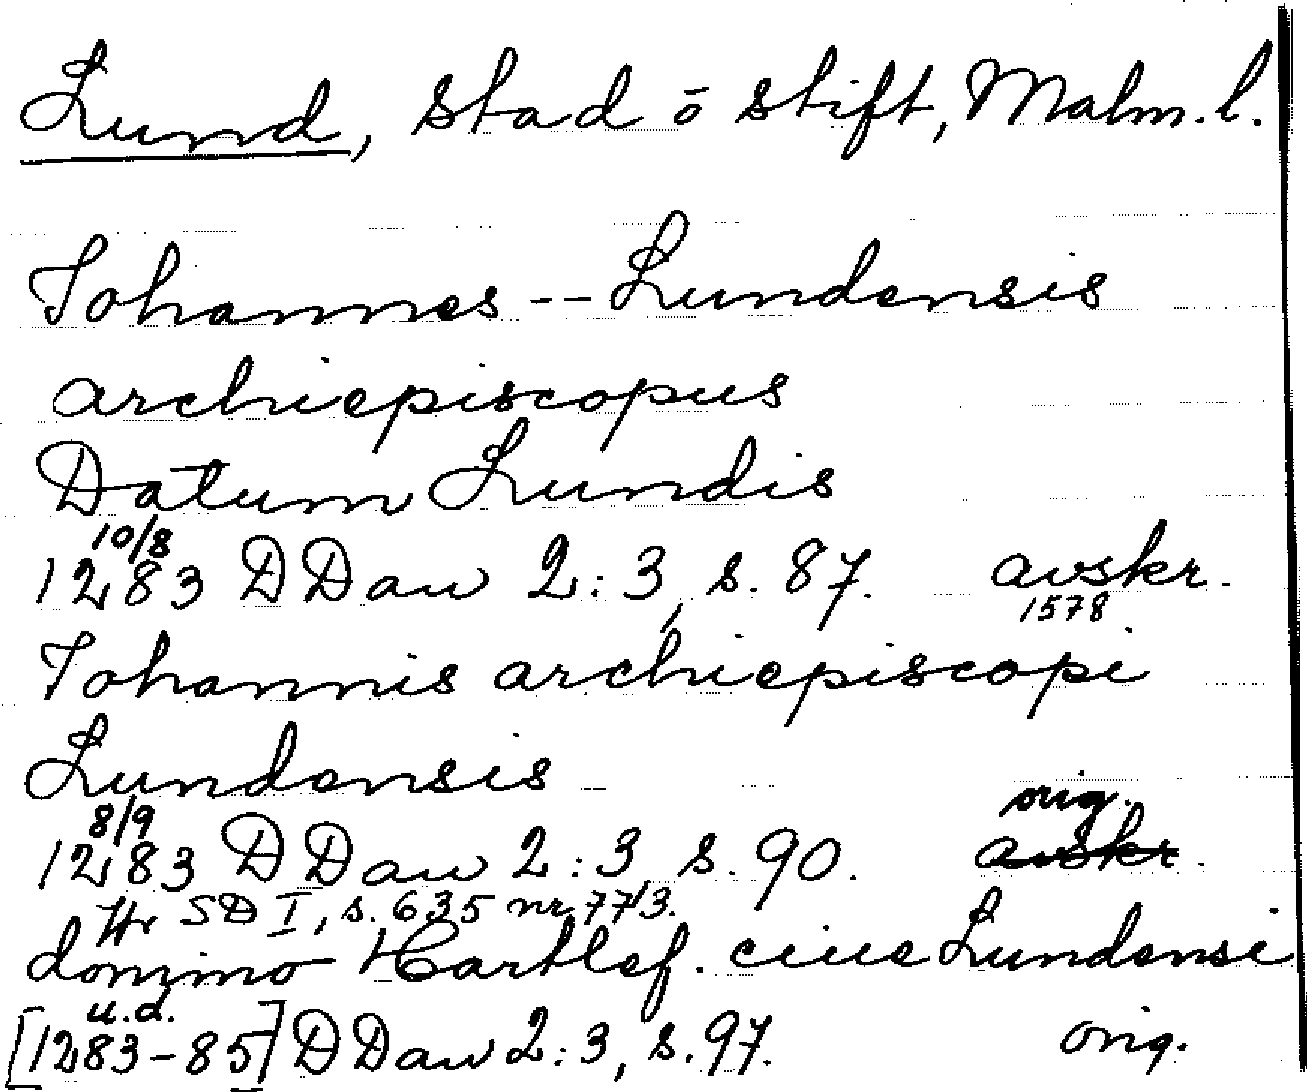 Lund, stad ō stift, Malm. l.
Johannes -- Lundensis
archiepiscopus
Datum Lundis
10/8
1283 DDan 2:3, s. 87. avskr.
1578
Johannis archiepiscopi
Lundensis
8/9 orig.
1283 DDan 2:3, s. 90. avskr.
Tr SD I, s. 635 nr 773.
domino Hartlef. ciue Lundensi
u.d.
[1283-85] DDan 2:3, s. 97. orig.